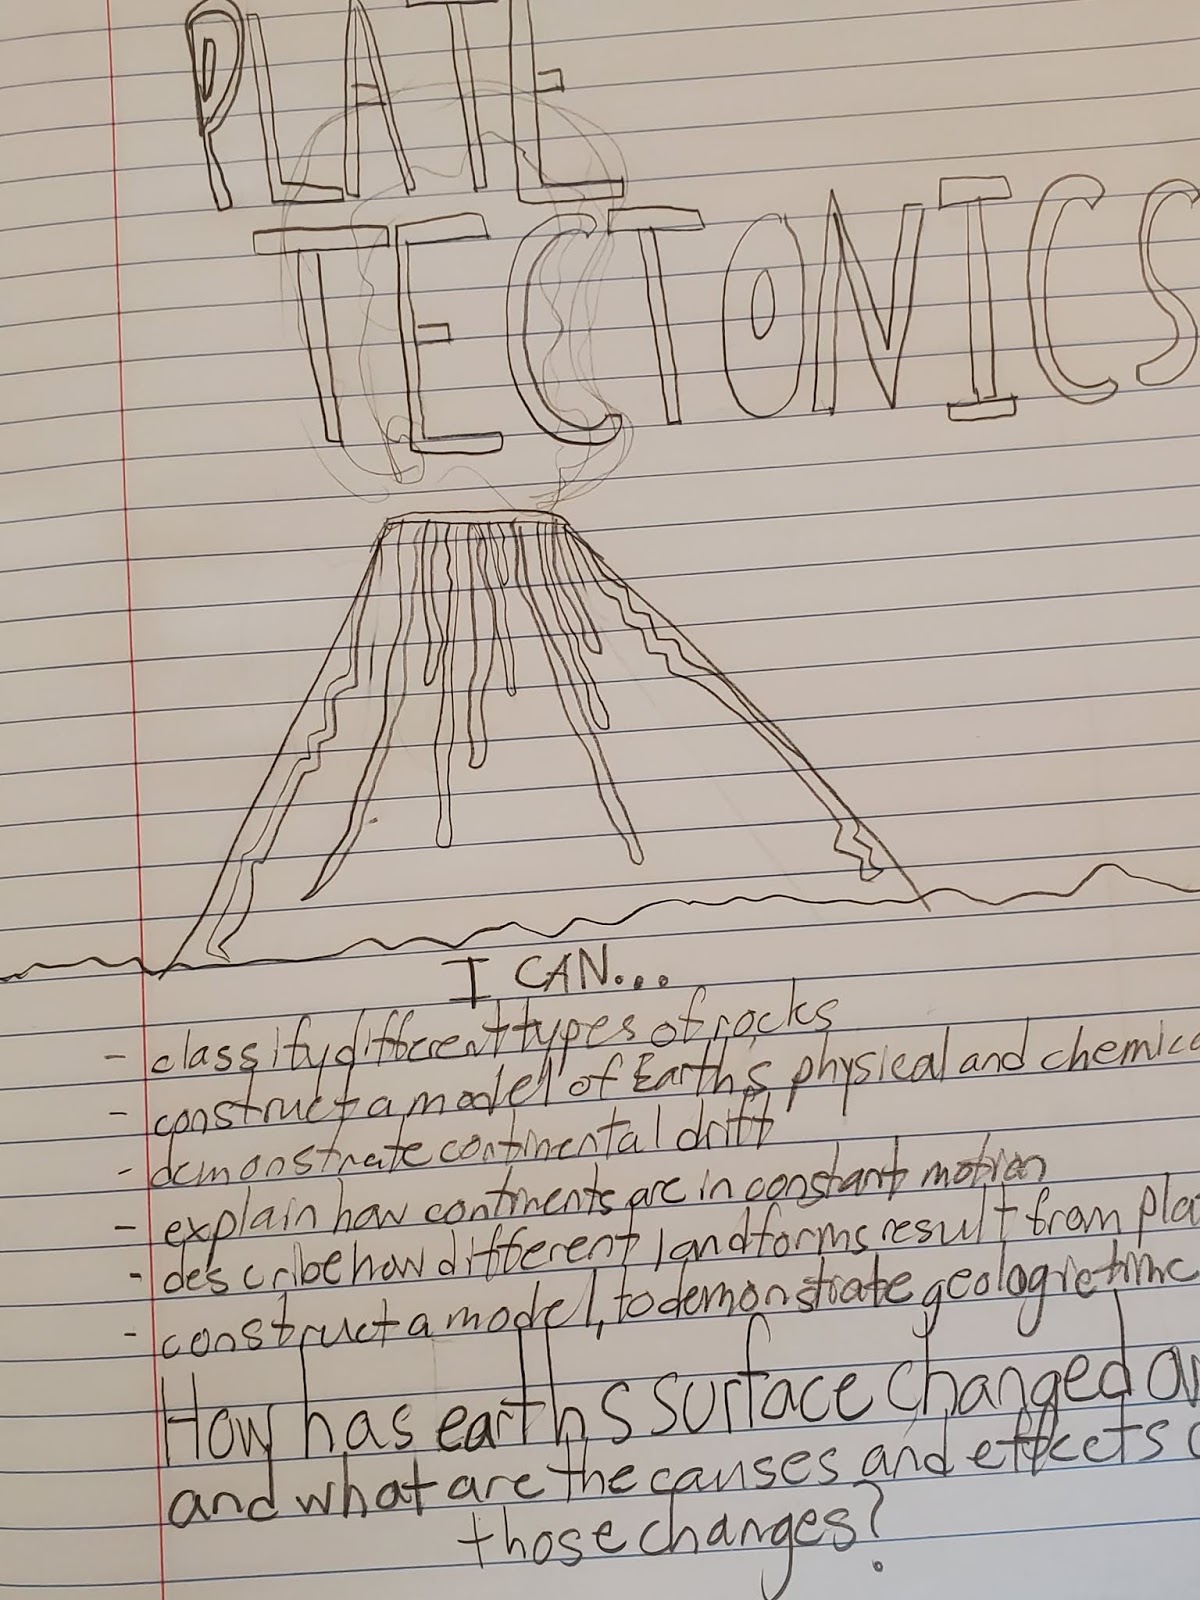 PLATE
TECTONICS
I CAN...
- classify different types of rocks
- construct a model of Earth's physical and chemica
- demonstrate continental drift
- explain how continents are in constant motion
- describe how different landforms result from pla
- construct a model, to demonstrate geologic time
How has earth's surface changed
and what are the causes and effects
those changes?